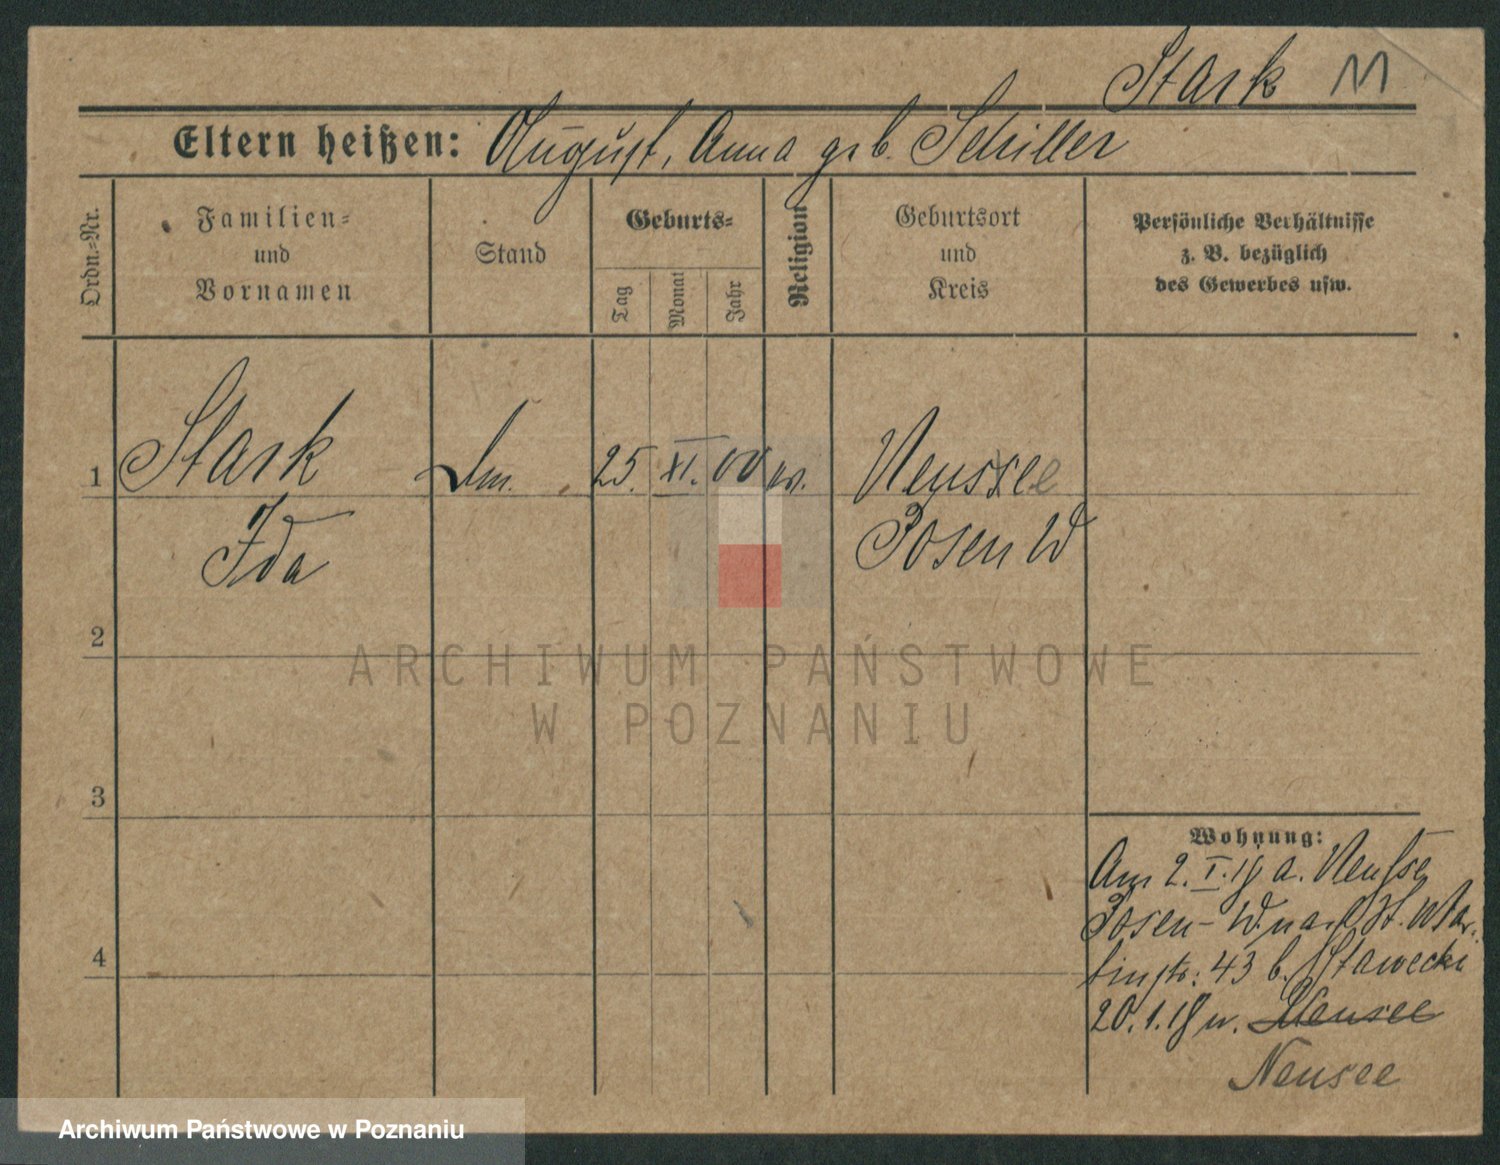 Stark M
Eltern heißen: August, Anna geb. Schiller
Ordn.-Nr.
Familien-
und
Vornamen
Stand
Geburts-
Tag
Monat
Jahr
Religion
Geburtsort
und
Kreis
Persönliche Verhältnisse
z. B. bezüglich
des Gewerbes usw.
1 Stark 25. XI. 00 ev. Neussee
Ida Posen W
2
3
4
Wohnung:
Am 2. I. 18 a. Neusse
Posen-W. nach St. Mar-
tinstr. 43 b. Stawecki
20.1.18 n. Neusee
Neusee
ARCHIWUM PAŃSTWOWE
W POZNANIU
Archiwum Państwowe w Poznaniu